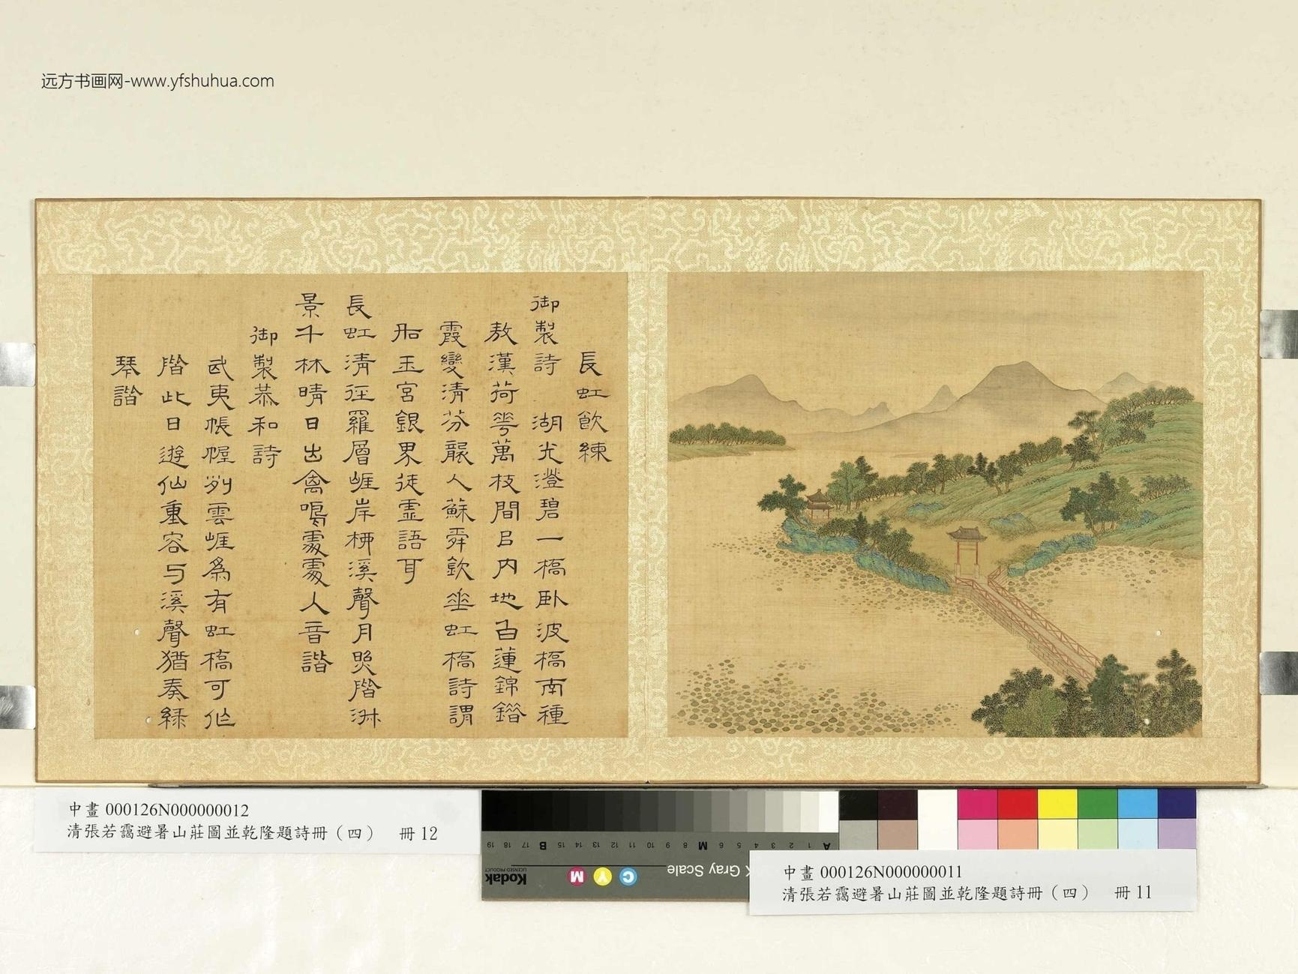 远方书画网-www.yfshuhua.com
長虹飲練
御製詩 湖光澄碧一橋臥波橋南種
敖漢荷花萬枝間吕内地白蓮錦錯
霞變清芬襲人蘇舜欽垂虹橋詩謂
船玉宮銀界徒虛語耳
長虹清徑羅層崖岸柳溪聲月照階淋
景千林晴日出禽鳴處處人音諧
御製恭和詩
武夷帳幄列雲崖為有虹橋可作
階此日遊仙重容与溪聲猶奏綠
琴諧
中畫 000126N000000012
清張若靄避暑山莊圖並乾隆題詩冊（四） 冊 12
中畫 000126N000000011
清張若靄避暑山莊圖並乾隆題詩冊（四） 冊 11
Kodak
LICENSED PRODUCT
C Y M
Gray Scale
A 1 2 3 4 5 6 M 8 9 10 11 12 13 14 15 B 17 18 19